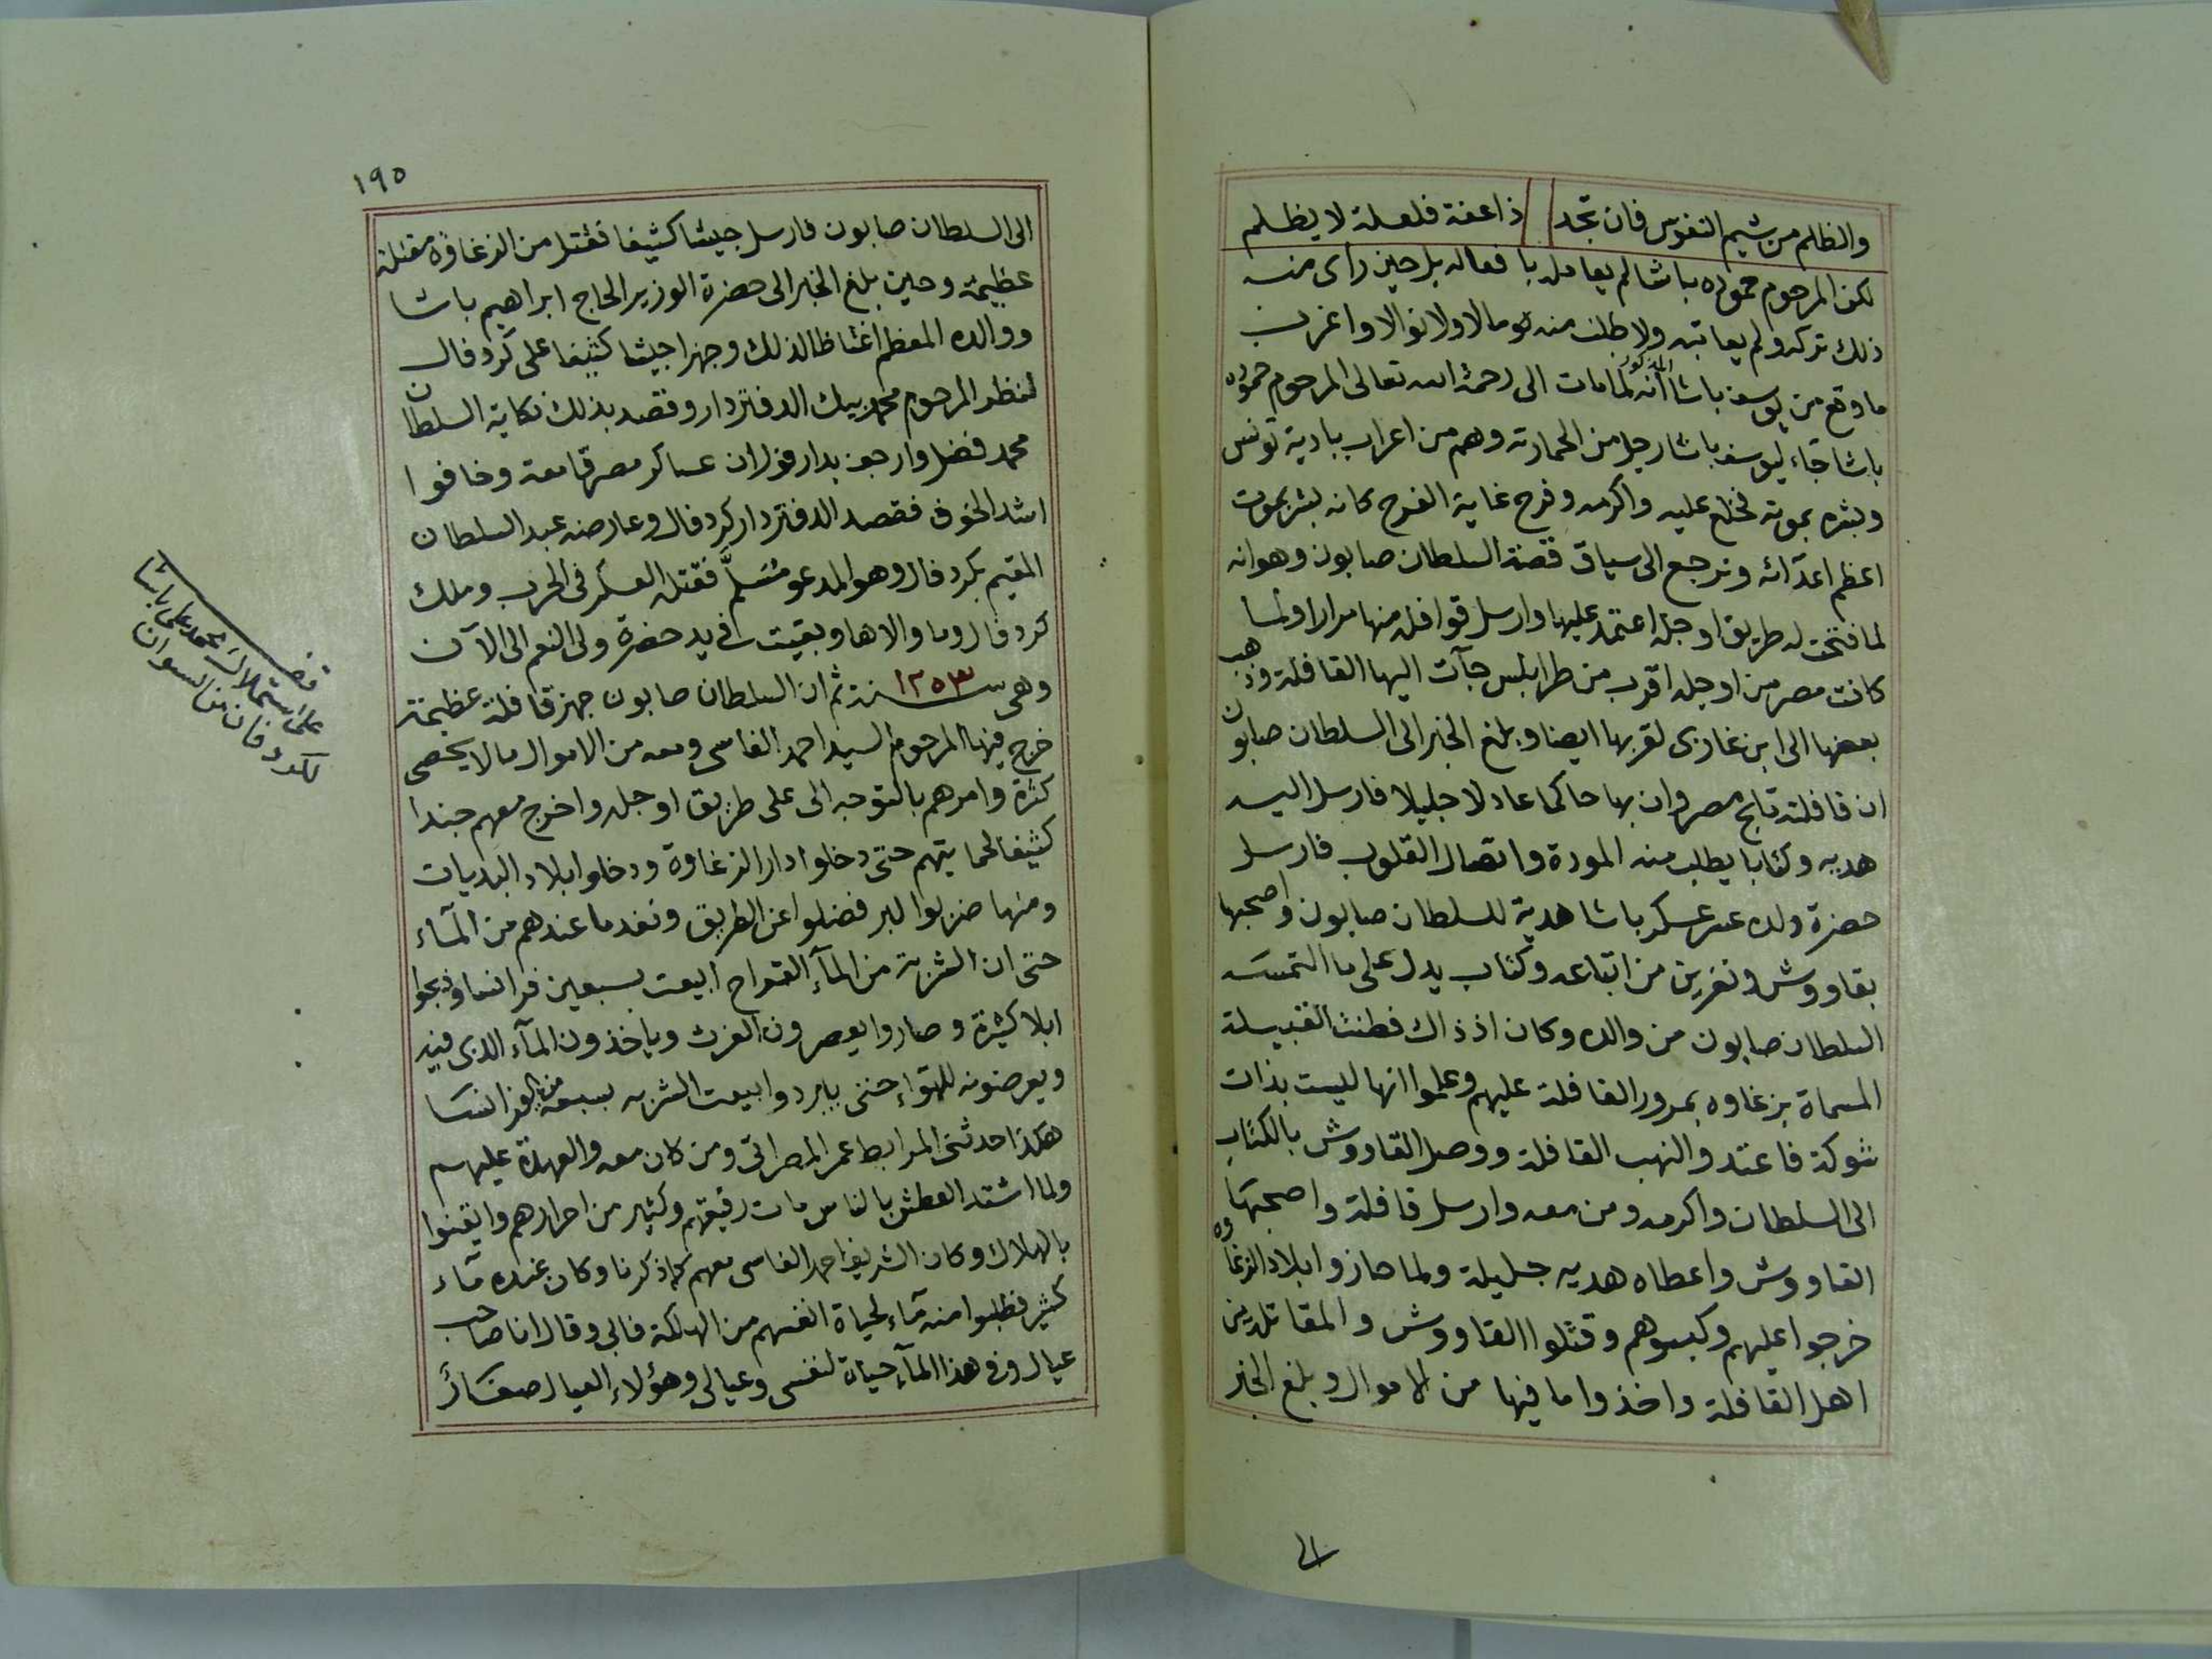 والظلم من شيم النفوس فان تجد ذا عفة فلعلة لا يظلم
لكن المرحوم حموده باشا لم يعامله بافعاله بل حين راى منه
ذلك تركه ولم يعاتبه ولا طلب منه توما لا ولا نوالا واغرب
ما وقع من يوسف باشا المذكور انه لما مات الى رحمة الله تعالى المرحوم حموده
باشا جاء ليوسف باشا رجل من الحمارنه وهم من اعراب بادية تونس
وبشره بموته فخلع عليه واكرمه وفرح غاية الفرح كانه بشر بموت
اعظم اعدآئه ونرجع الى سياق قصة السلطان صابون وهو انه
لما فتحت له طريق اوجله اعتمد عليها وارسل قوافله منها مرارا ولما
كانت مصر من اوجله اقرب من طرابلس جآت اليها القافلة وذهب
بعضها الى ابن غازى لقربها ايضا وبلغ الخبر الى السلطان صابون
ان قافلته تابح مصر وان بها حاكما عادلا جليلا فارسل اليه
هديه وكتابا يطلب منه المودة واتصال القلوب فارسل
حضرة ولده عسكر باشا هدية للسلطان صابون واصحبها
بقاووش ونفرين من اتباعه وكتاب يدل على ما التمسه
السلطان صابون من والده وكان اذ ذاك فطنت القبيلة
المسماة بزغاوه بمرور القافلة عليهم وعلموا انها ليست بذات
شوكة فاعتدوا لنهب القافلة ووصل القاووش بالكتاب
الى السلطان واكرمه ومن معه وارسل قافلة واصحبها
القاووش واعطاه هديه جليلة ولما حازوا بلاد الزغاوه
خرجوا عليهم وكبسوهم وقتلوا القاووش والمقاتلين
اهل القافلة واخذوا ما فيها من الاموال وبلغ الخبر
الى
١٩٥
الى السلطان صابون فارسل جيشا كثيفا فقتل من الزغاوة مقتلة
عظيمة وحين بلغ الخبر الى حضرة الوزير الحاج ابراهيم باشا
ووالده المعظم اغتاظا لذلك وجهزا جيشا كثيفا على كردفال
لنظر المرحوم محمد بيك الدفتردار وقصد بذلك نكاية السلطان
محمد فضل وارجف بدارفور ان عساكر مصر قامعه وخافوا
اشد الخوف فقصد الدفتردار كردفال وعارضه عبد السلطان
المقيم بكردفال وهو المدعو مسلّم فقتله العسكر فى الحرب وملك
كردفال وما والاها وبقيت فى يد حضرة ولى النعم الى الآن
وهى سنة ١٢٥٣ ثم ان السلطان صابون جهز قافلة عظيمة
خرج فيها المرحوم السيد احمد الفاسى ومعه من الاموال ما لا يحصى
كثرة وامرهم بالتوجه الى على طريق اوجله واخرج معهم جندا
كثيفا لحمايتهم حتى دخلوا دار الزغاوة ودخلوا بلاد البديات
ومنها ضربوا البر فضلوا عن الطريق ونفد ما عندهم من المآء
حتى ان الشربة من المآء القواح ابيعت بسبعين فرانسا وذبحوا
ابلا كثيرة وصاروا يعصرون الفرث وياخذون المآء الذى فيه
ويعرضونه للهوآء حتى يبرد وابيعت الشربه بسبعه من الفرانسا
هكذا حدثنى المرابط عمر المصراتى ومن كان معه والعهدة عليهم
ولما اشتد العطش بالناس مات رقيقهم وكثير من احرارهم وايقنوا
بالهلاك وكان الشريف احمد الفاسى معهم كما ذكرنا وكان عنده مآء
كثير فطلبوا منه مآء لحياة انفسهم من الهلكة فابى وقال انا صاحب
عيال وفى هذا المآء حياة لنفسى وعيالى وهؤلاء العيال صغار
قف
على استملاك محمد على باشا
لكردفان من السودان